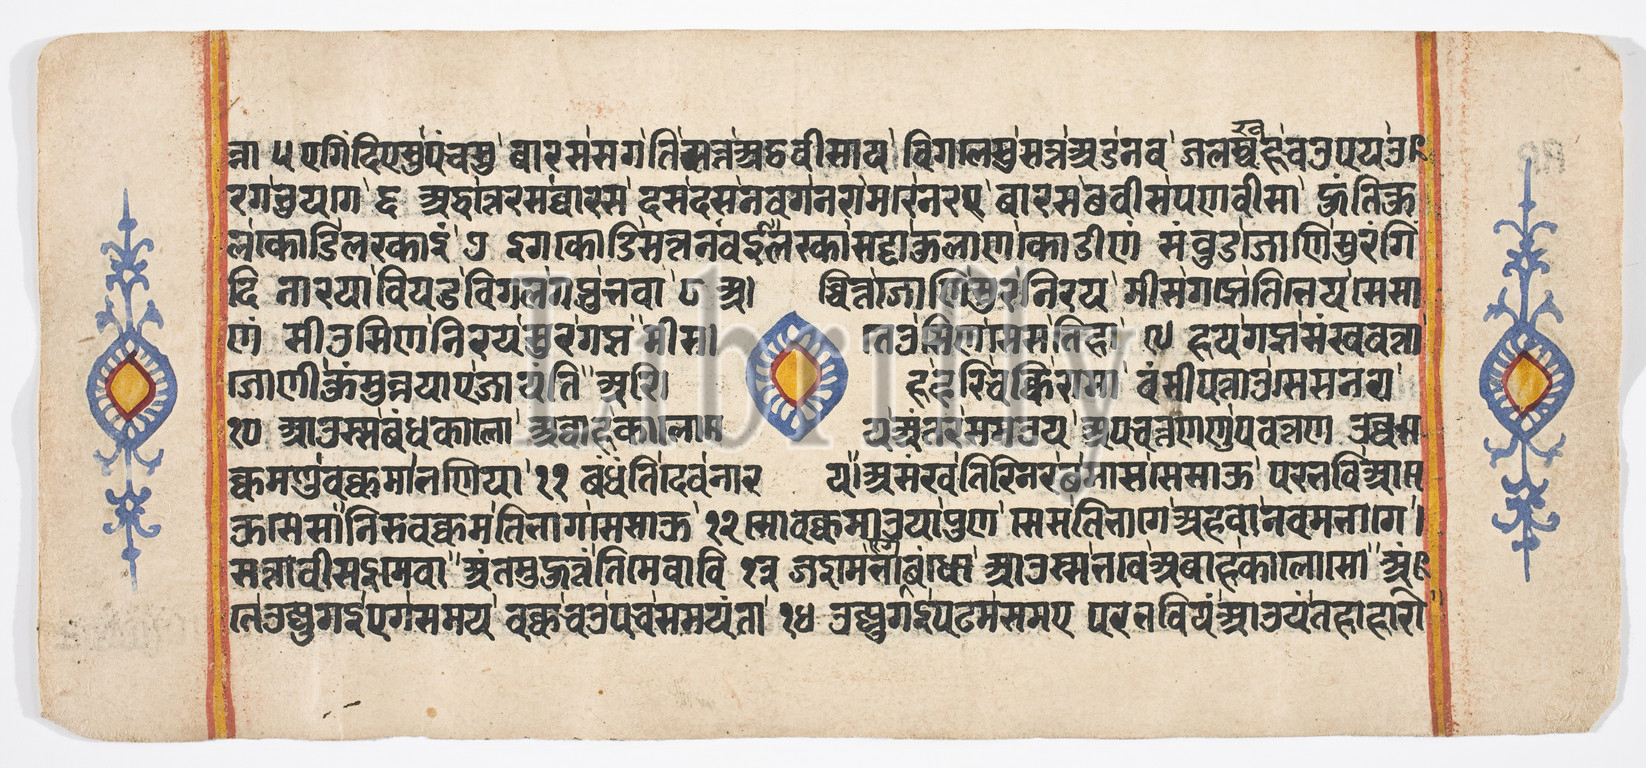 न्ना ५ एगिंदिएसु पंचसु बार सग ति सत्त अठवीसा य विगलेसु सत्त अड नव जल खह चउपय उ
रग भुयगे ६ अद्धतेरस बारस दस दस नवगं नरामरे नरए बारस छवीस पणवीसा हुंति कु
लकोडिलरकाइं ७ इगकोडि सत्तनवई लरका सड्ढा कुलाण कोडीणं संवुडजोणि सुरेगिं
दि नारया वियड विगल गप्भुभया ८ अ चित्तजोणि सुर निरय मीस गप्भे तिभेय सेसा
णं सीउसिण निरय सुर गप्भ मीसे तेउसिण सेस तिहा ९ हयगप्भ संखवत्ता
जोणी कुंमुन्नयाए जायंति अरि हहरि चक्कि रामा वंसीपत्ताउ सेसनरा
१० आउस्स बंधकालो अबाहकालो य अंतसमउ य अपवत्तणणपवत्तण उवक्कम
णुवक्कमा भणिया ११ बंधंति देव नारय असंखतिरि नर छमाससेसाऊ परभविआ
ऊ सेसा निरुवक्कम तिभागसेसाऊ १२ सोवक्कमाउया पुण सेसतिभागे अहव नवमभागे
सत्तावीसइमे वा अंतमुहुत्तंतिमे वावि १३ जइमे भागे बंधो आउस्स भवे अबाहकालो सो अं
ते उज्जुगइ एगसमय वक्क चउपंचसमयंता १४ उज्जुगइ पढमसमए परभवियं आउयं तहाहारो